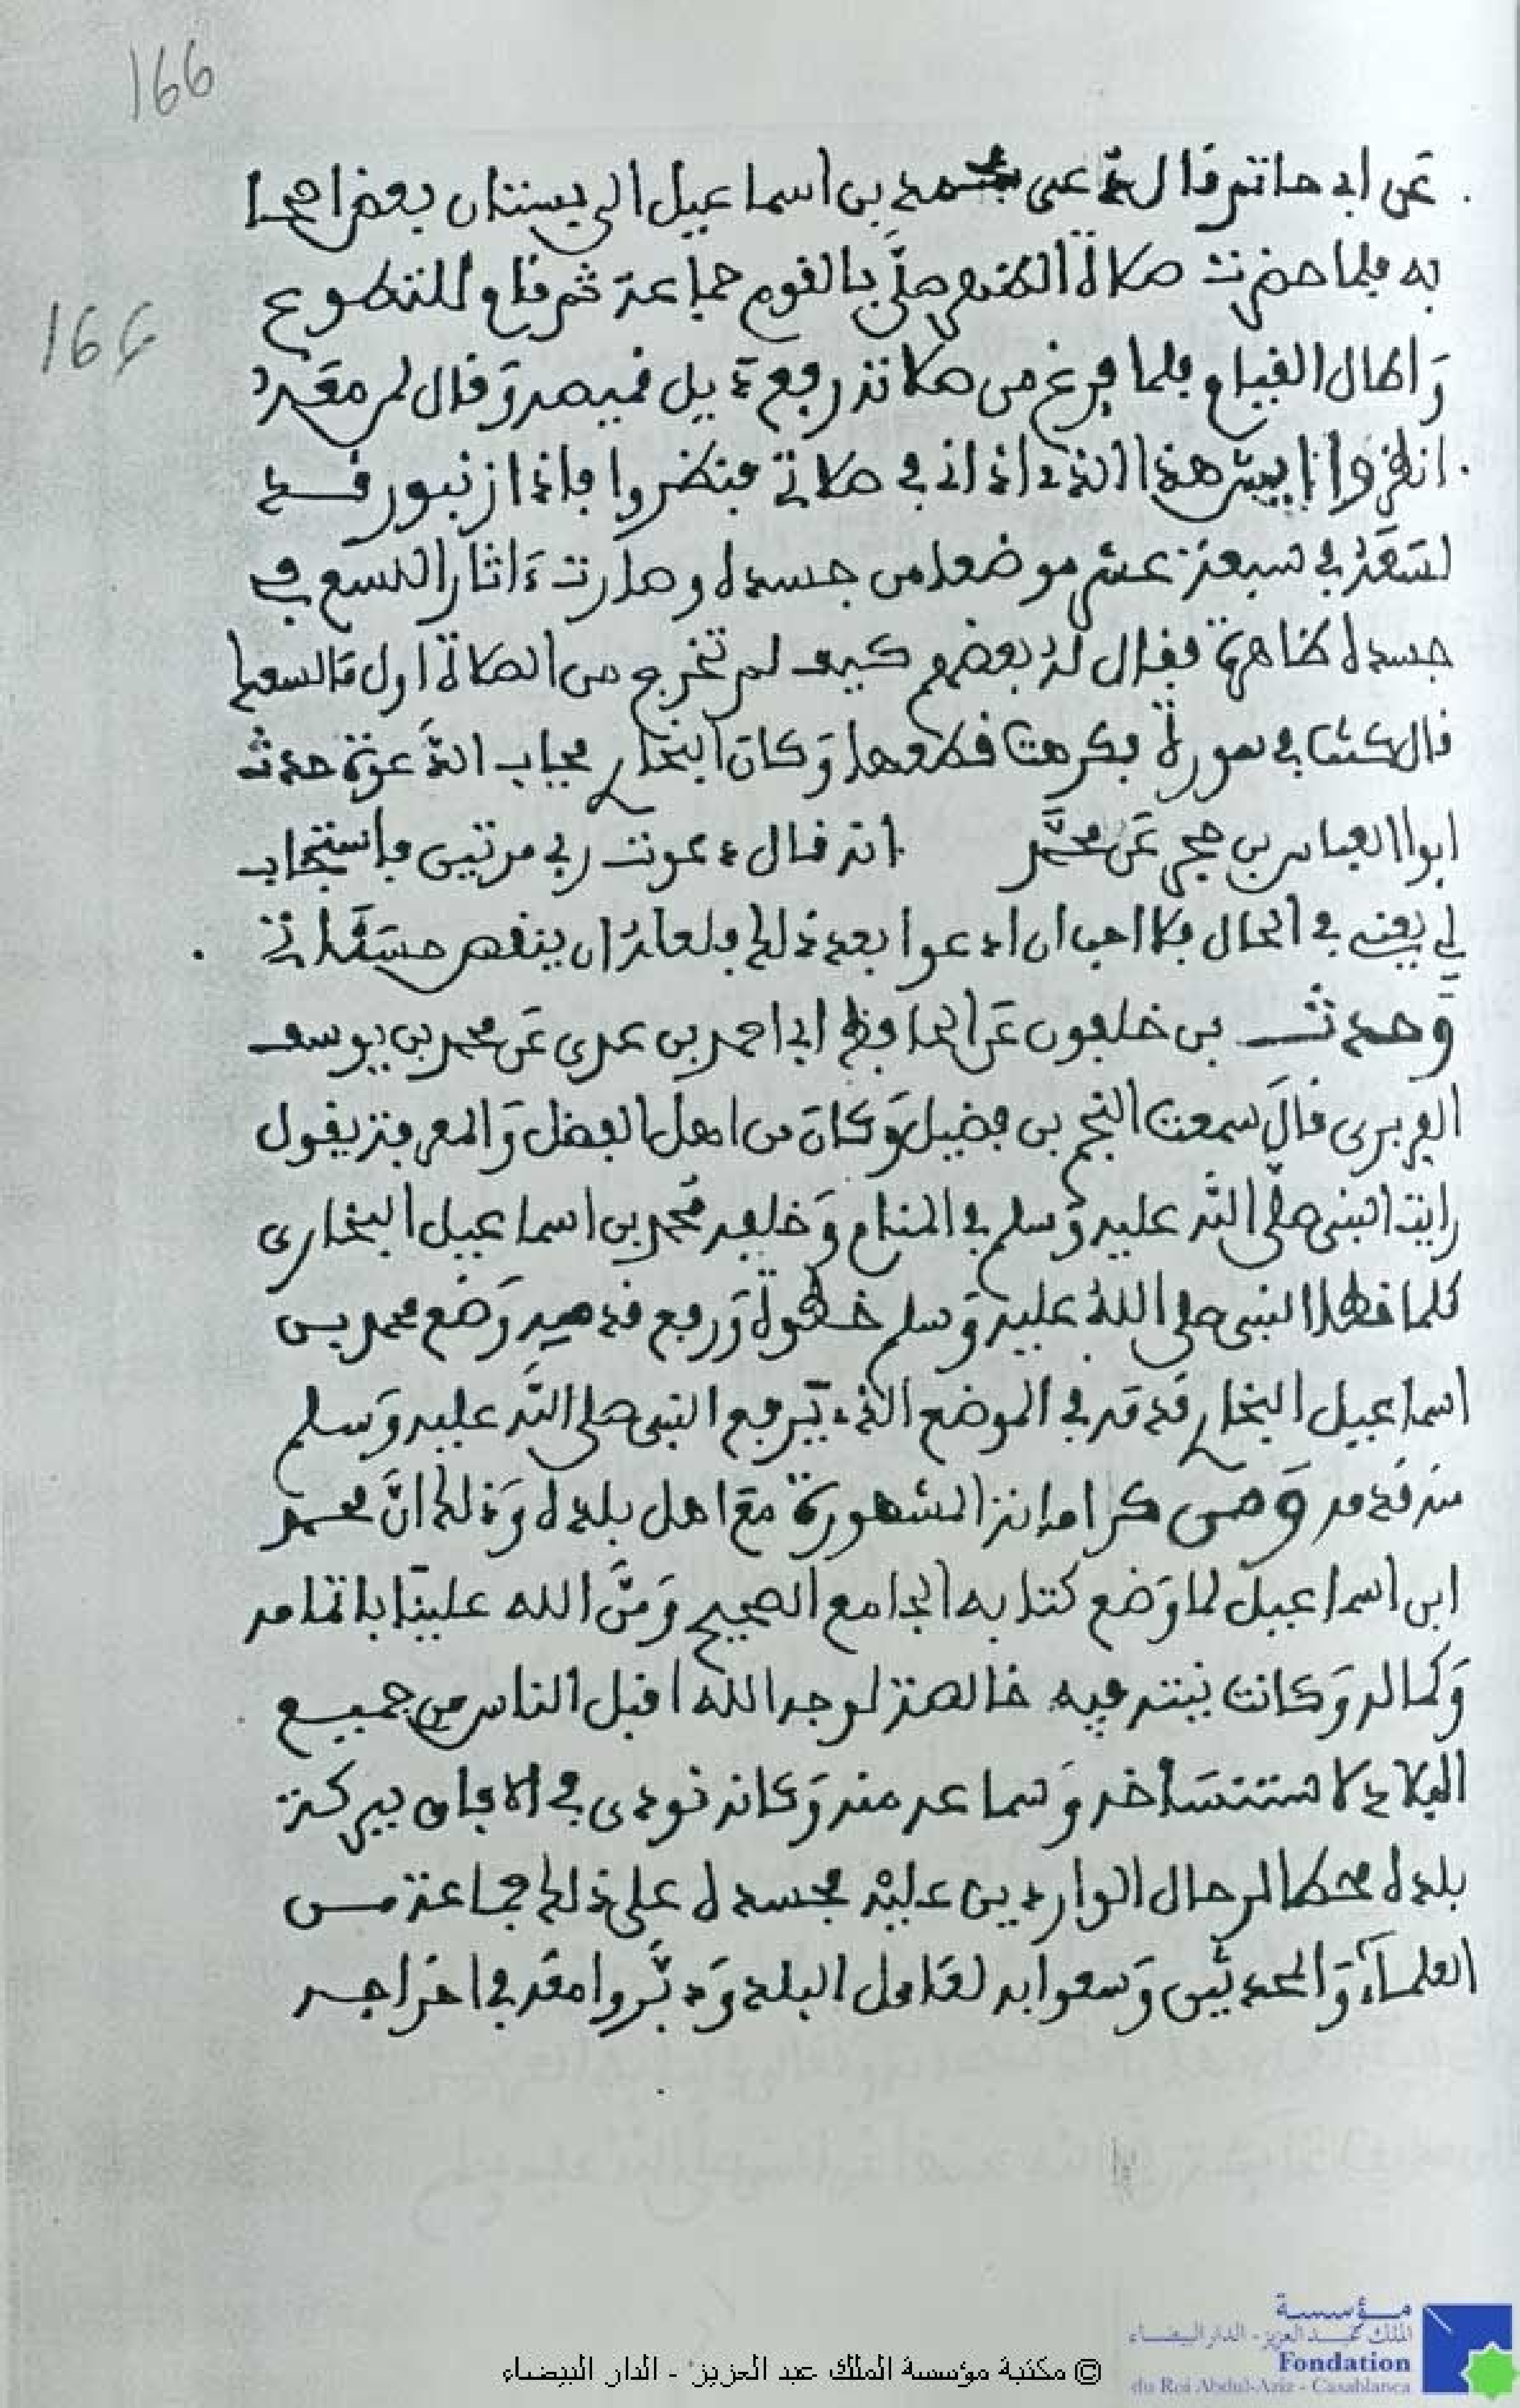 166
عن ابي حاتم قال دعى محمد بن اسماعيل الى بستان بعض اصحا
به فلما حضرت صلاة الظهر صلى بالقوم جماعة ثم قام للتطوع
166
وَاطال القيام فلما فرغ من صلاته رفع ذيل قميصه وَقال لمن معه
انظروا ايش هذا الذي اذاني في صلاتي فنظروا فاذا زنبور قد
لسعه في سبعة عشر موضعا من جسده وصارت ءاثار اللسع في
جسده ظاهرة فقال له بعضهم كيف لم تخرج من الصلاة اول ما لسعها
قال كنت في سورة فكرهت قطعها وَكان البخاري مجاب الدعوة حدث
ابوا العباس بن حجر عن محمد انه قال دعوت ربي مرتين فاستجاب
لي يعني في الحال فلا احب ان ادعوا بعد ذلك فلعله ان ينقص حسناتي
وَحدث بن خلفون عَن الحافظ ابي احمد بن عدي عَن محمد بن يوسف
الفربري قالَ سمعت النجم بن فضيل وَكانَ من اهل الفضل وَالمعرفة يقول
رايت النبي صلى الله عليه وَسلم في المنام وَخلفه محمد بن اسماعيل البخاري
كلما خطا النبي صلى الله عليه وَسلم خطوة وَرفع قدميه وَضع محمد بن
اسماعيل البخاري قدمه في الموضع الذي يرفع النبي صلى الله عليه وَسلم
منه قدمه وَمن كراماته المشهورة مع اهل بلده وَذلك انَّ محمد
ابن اسماعيل لما وَضع كتابه الجامع الصحيح وَمنَّ الله علينا باتمامه
وَكماله وَكانت نيته فيه خالصة لوجه الله اقبل الناس من جميع
البلاد لاستنساخه وَسماعه منه وَكانه نودي في الافاق ببركة
بلده محط الرحال الواردين عليه فحسده على ذلك جماعة من
العلماء وَالمحدثين وَسعوا به لعامل البلد وَدبَّروا معه في اخراجه
مؤسسة
الملك عبد العزيز - الدار البيضاء
Fondation
du Roi Abdul-Aziz - Casablanca
© مكتبة مؤسسة الملك عبد العزيز - الدار البيضاء